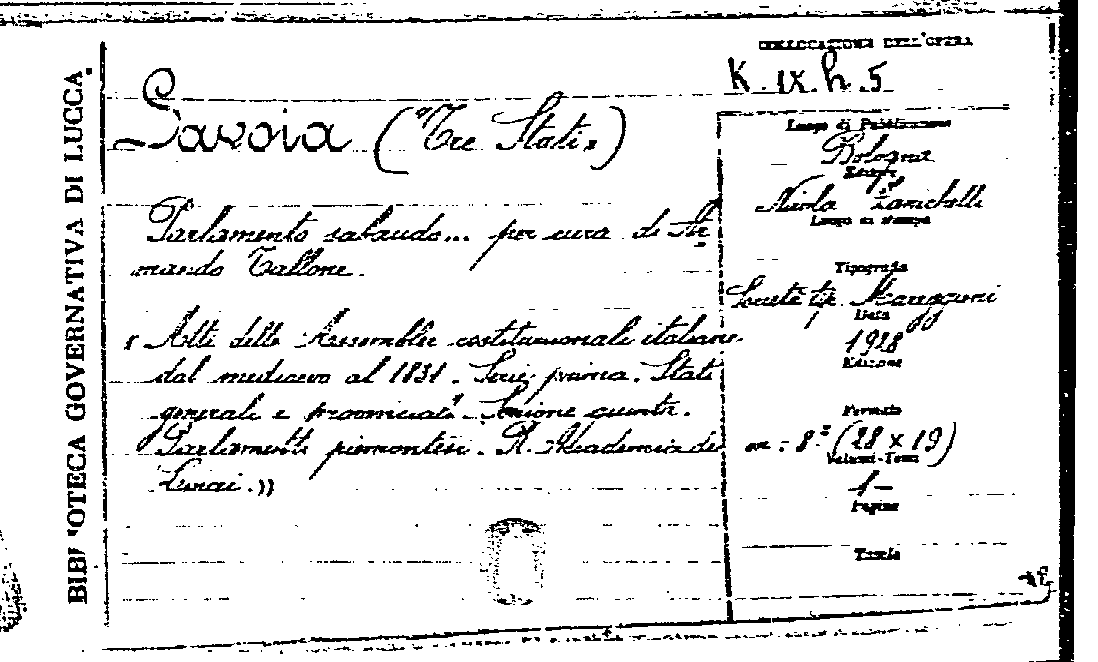 BIBLIOTECA GOVERNATIVA DI LUCCA
COLLOCAZIONE DELL'OPERA
K. IX. h. 5
Savoia ("Tre Stati")
Parlamento sabaudo... per cura di Ar=
mando Tallone.
« Atti delle Assemblee costituzionali italiane
dal medioevo al 1831. Serie prima. Stati
generali e provinciali. Sezione quinta.
Parlamenti piemontesi. R. Accademia dei
Lincei. »
Luogo di Pubblicazione
Bologna
Editore
Nicola Zanichelli
Luogo di stampa
Tipografia
Società tip. Mareggiani
Data
1928
Edizione
Formato
in-8° (28 x 19)
Volumi-Tomi
1-
Pagine
Tavole